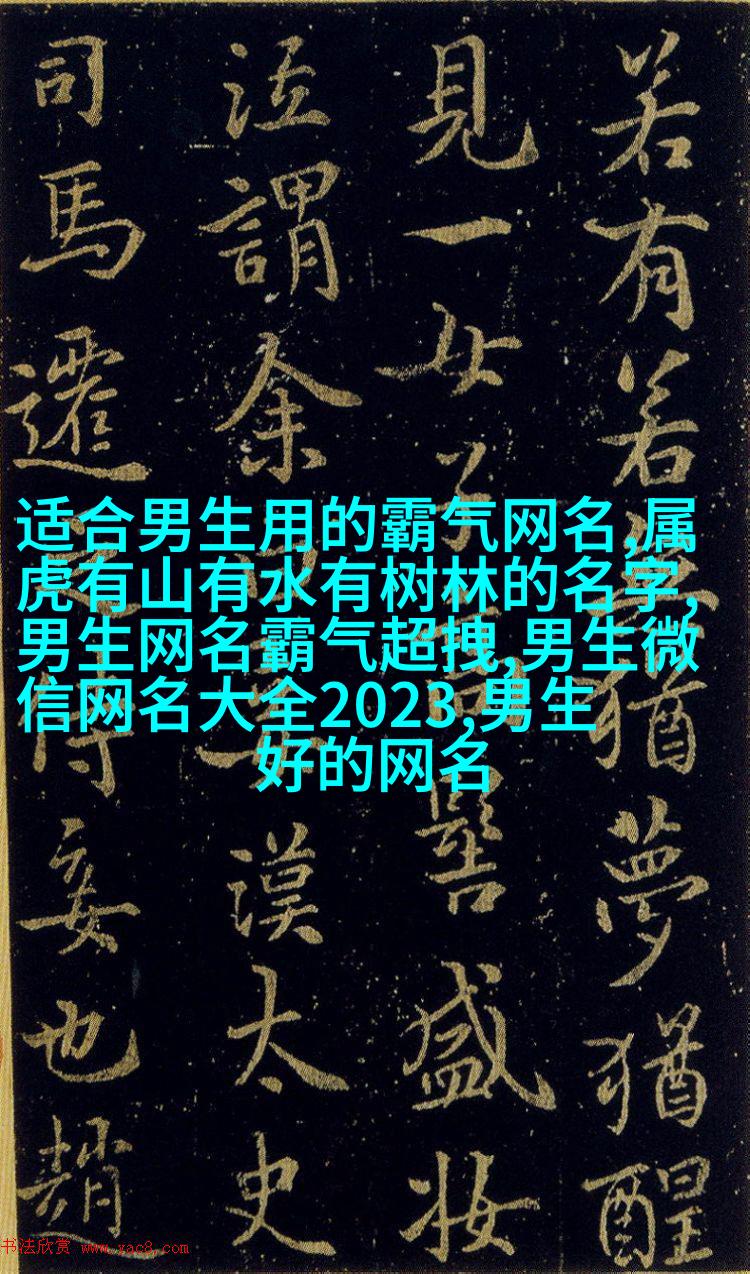 适合男生用的霸气网名,属
虎有山有水有树林的名字,
男生网名霸气超拽,男生微
信网名大全2023,男生
好的网名
若有若無猶夢猶醒
見一女子高髻盛妝
泣謂余曰妾漢太史
司馬遷之侍妾也趙
书法欣赏 www.yac8.com